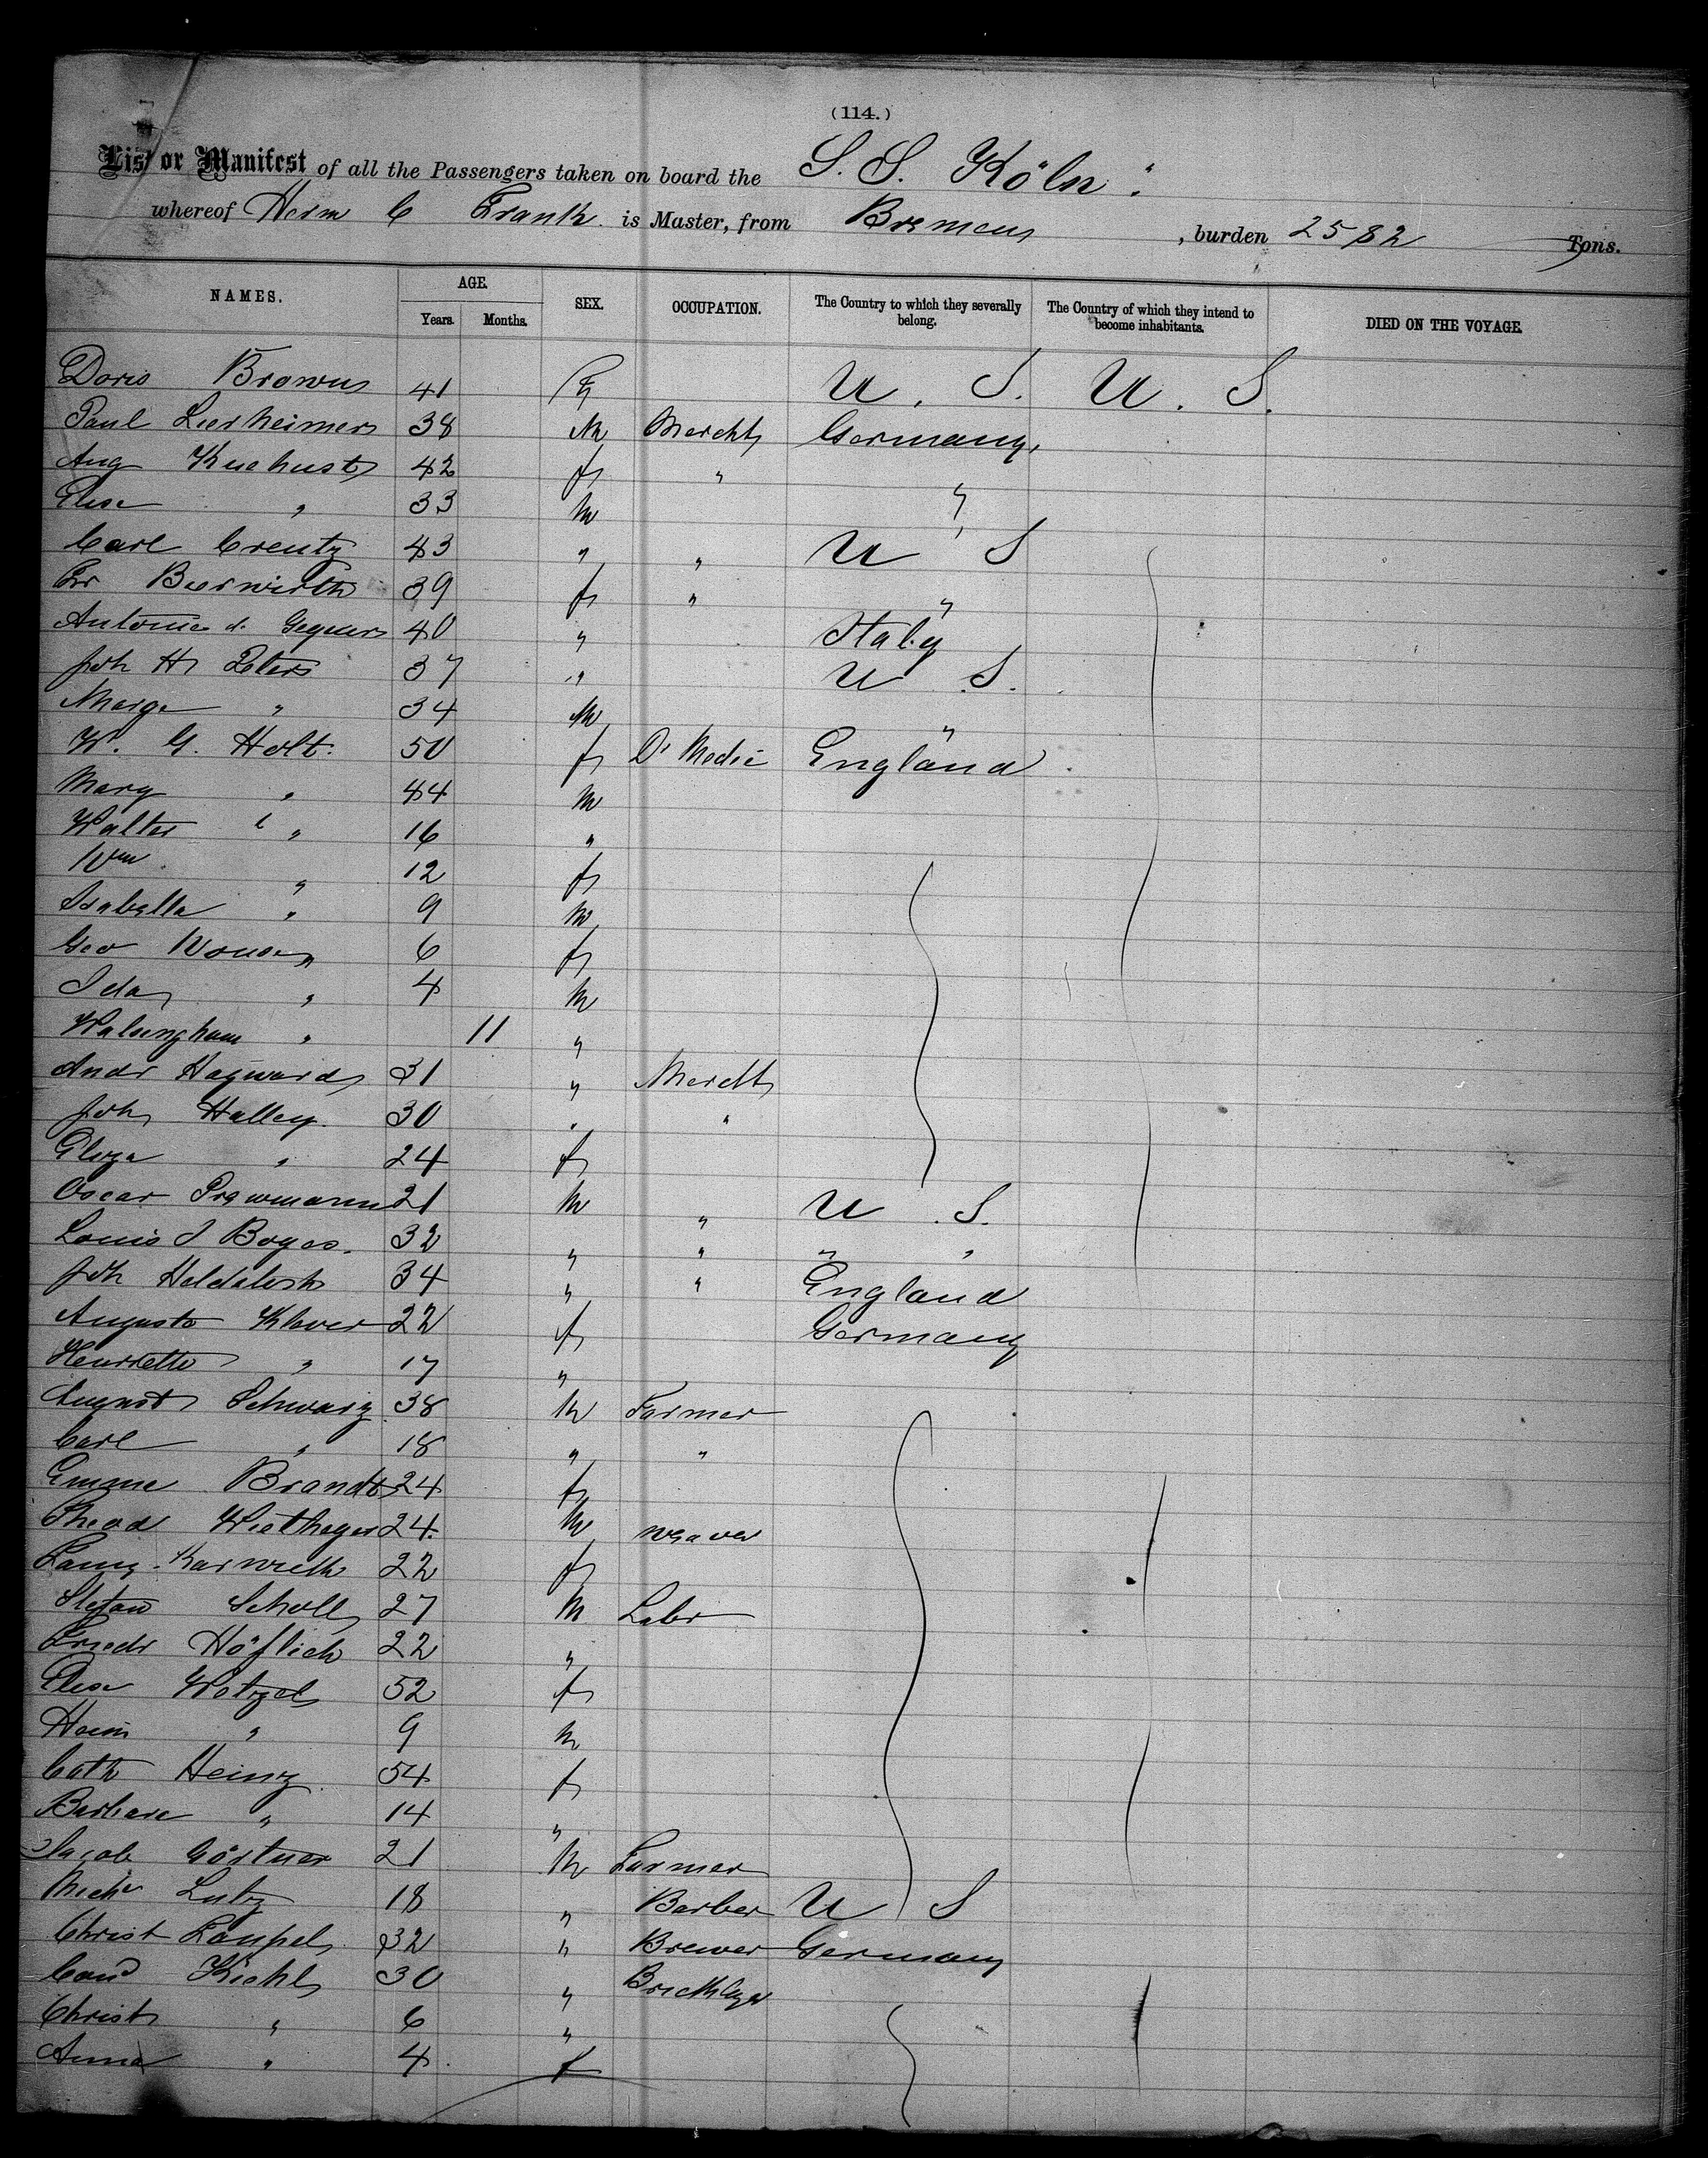 (114.)
List or Manifest of all the Passengers taken on board the S. S. Köln
whereof Herm C Frank is Master, from Bremen, burden 2582 Tons.
NAMES. AGE. Years. Months. SEX. OCCUPATION. The Country to which they severally belong. The Country of which they intend to become inhabitants. DIED ON THE VOYAGE.
Doris Brown 41 F U. S. U. S.
Paul Lierheimer 38 M Mercht Germany,
Aug 42 f "
Elise " 33 M "
Carl Creutz 43 " " U S
Fr Bierwirth 39 f " "
Antonie d. 40 " Italy
Joh H Peters 37 " U S.
Marga " 34 M "
W. G. Holt. 50 f Dr Medic England
Mary " 44 M
Walter C " 16 "
Wm " 12 f
Isabella " 9 M
Geo " 6 f
Ida " 4 M
Walsingham " 11 "
Andr Hayward 31 " Mercht
Joh Halley. 30 " "
Eliza " 24 f
Oscar 21 M " U. S.
Louis J Boyes. 32 " " " "
Joh 34 " " England
Augusta Klaver 22 f Germany
Henriette " 17 "
August Schwarz 38 M Farmer
Carl " 18 " "
Emma Brandt 24 f
Theod 24. M weaver
Fanny 22 f
Stefan Scholl 27 M Labr
Friedr Höflich 22 "
Elise Wetzel 52 f
Heinr " 9 M
Cath Heinz 54 f
Barbara " 14 "
Jacob Görtner 21 M Farmer
Mich Lutz 18 " Barber U S
Christ 32 " Brewer Germany
Conrd Kiehl 30 " Bricklayer
Christ " 6 "
Anna " 4 f